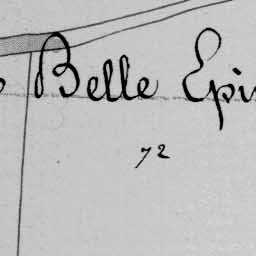 Belle Epi
72